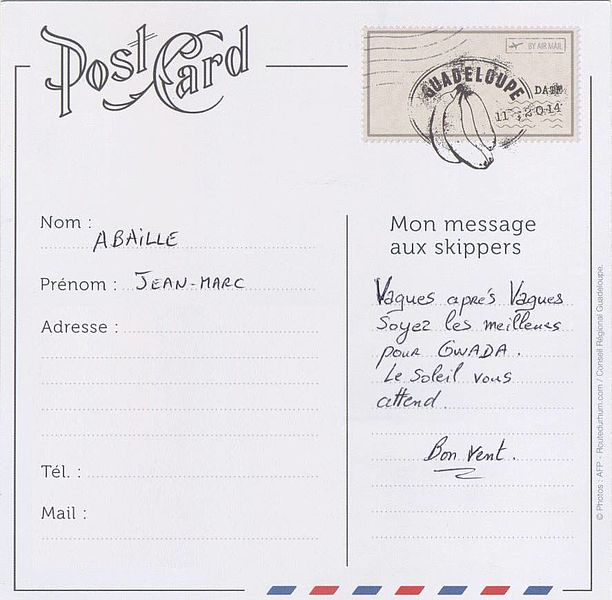 Post Card
BY AIR MAIL
GUADELOUPE
DATE
11 2014
Nom :
ABAILLE
Prénom : JEAN-MARC
Adresse :
Tél. :
Mail :
Mon message
aux skippers
Vagues après Vagues
Soyez les meilleurs
pour GWADA.
Le soleil vous
attend.
Bon vent.
© Photos : AFP - Routedurhum.com / Conseil Régional Guadeloupe.